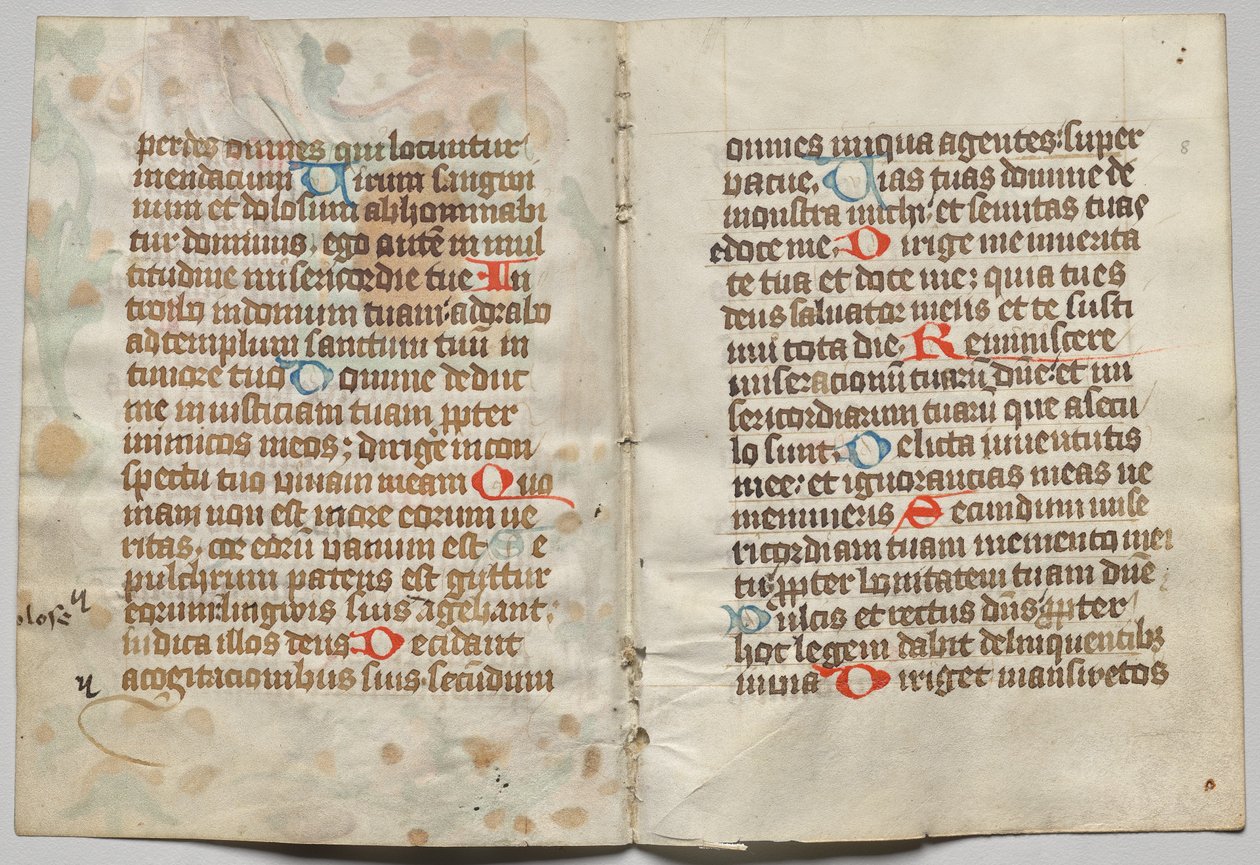 perdes omnes qui locuntur
mendacium Virum sangwi
num et dolosum abhominabi
tur dominus, ego autē in mul
titudine misericordie tue In
troibo in domum tuam: adorabo
ad templum sanctum tuū in
timore tuo Domine deduc
me in iusticiam tuam ꝓpter
inimicos meos; dirige in con
spectu tuo viuam meam Quo
niam non est in ore eorum ve
ritas, cor eorū vanum est Se
pulchrum patens est guttur
eorum: lingwis suis agebant:
iudica illos deus Decidant
a cogitacionibus suis secūdum
omnes iniqua agentes: super
vacue. Vias tuas domine de
monstra michi: et semitas tuas
edoce me. Dirige me in uerita
te tua et doce me: quia tu es
deus saluator meus et te susti
nui tota die Reminiscere
miseracionū tuarū dn̄e: et mi
sericordiarum tuarū que a secu
lo sunt. Delicta iuuentutis
mee: et ignorancias meas ne
memineris Secundum mise
ricordiam tuam memento mei
tu ꝓpter bonitatem tuam dn̄e
Dulcis et rectus dn̄s ꝓpter
hoc legem dabit delinquentibꝫ
in uia Diriget mansuetos
8